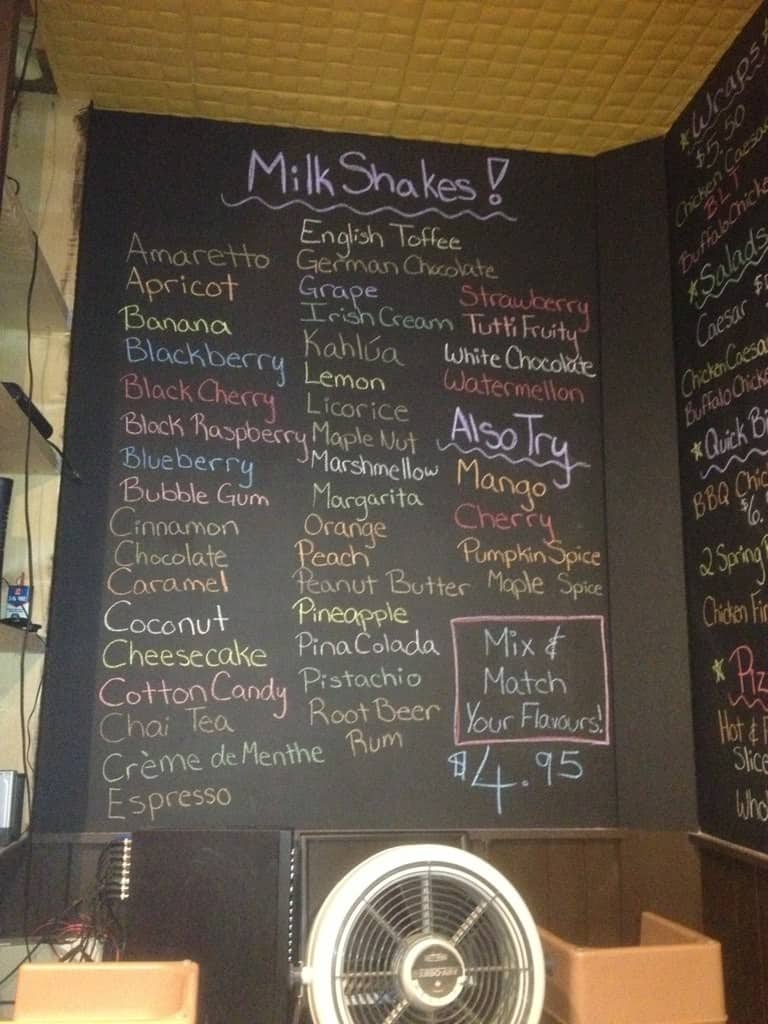 MilkShakes!
Amaretto
Apricot
Banana
Blackberry
Black Cherry
Black Raspberry
Blueberry
Bubble Gum
Cinnamon
Chocolate
Caramel
Coconut
Cheesecake
Cotton Candy
Chai Tea
Crème de Menthe
Espresso
English Toffee
German Chocolate
Grape
Irish Cream
Kahlúa
Lemon
Licorice
Maple Nut
Marshmellow
Margarita
Orange
Peach
Peanut Butter
Pineapple
Pina Colada
Pistachio
Root Beer
Rum
Strawberry
Tutti Fruity
White Chocolate
Watermellon
Also Try
Mango
Cherry
Pumpkin Spice
Maple Spice
Mix &
Match
Your Flavours!
$4.95
*Wraps*
$5.50
Chicken Caesar
BLT
Buffalo Chicke
*Salads
Caesar
Chicken Caesa
Buffalo Chick
*Quick Bi
BBQ Chic
$6.
2 Spring
Chicken Fin
*Piz
Hot &
Slice
Who